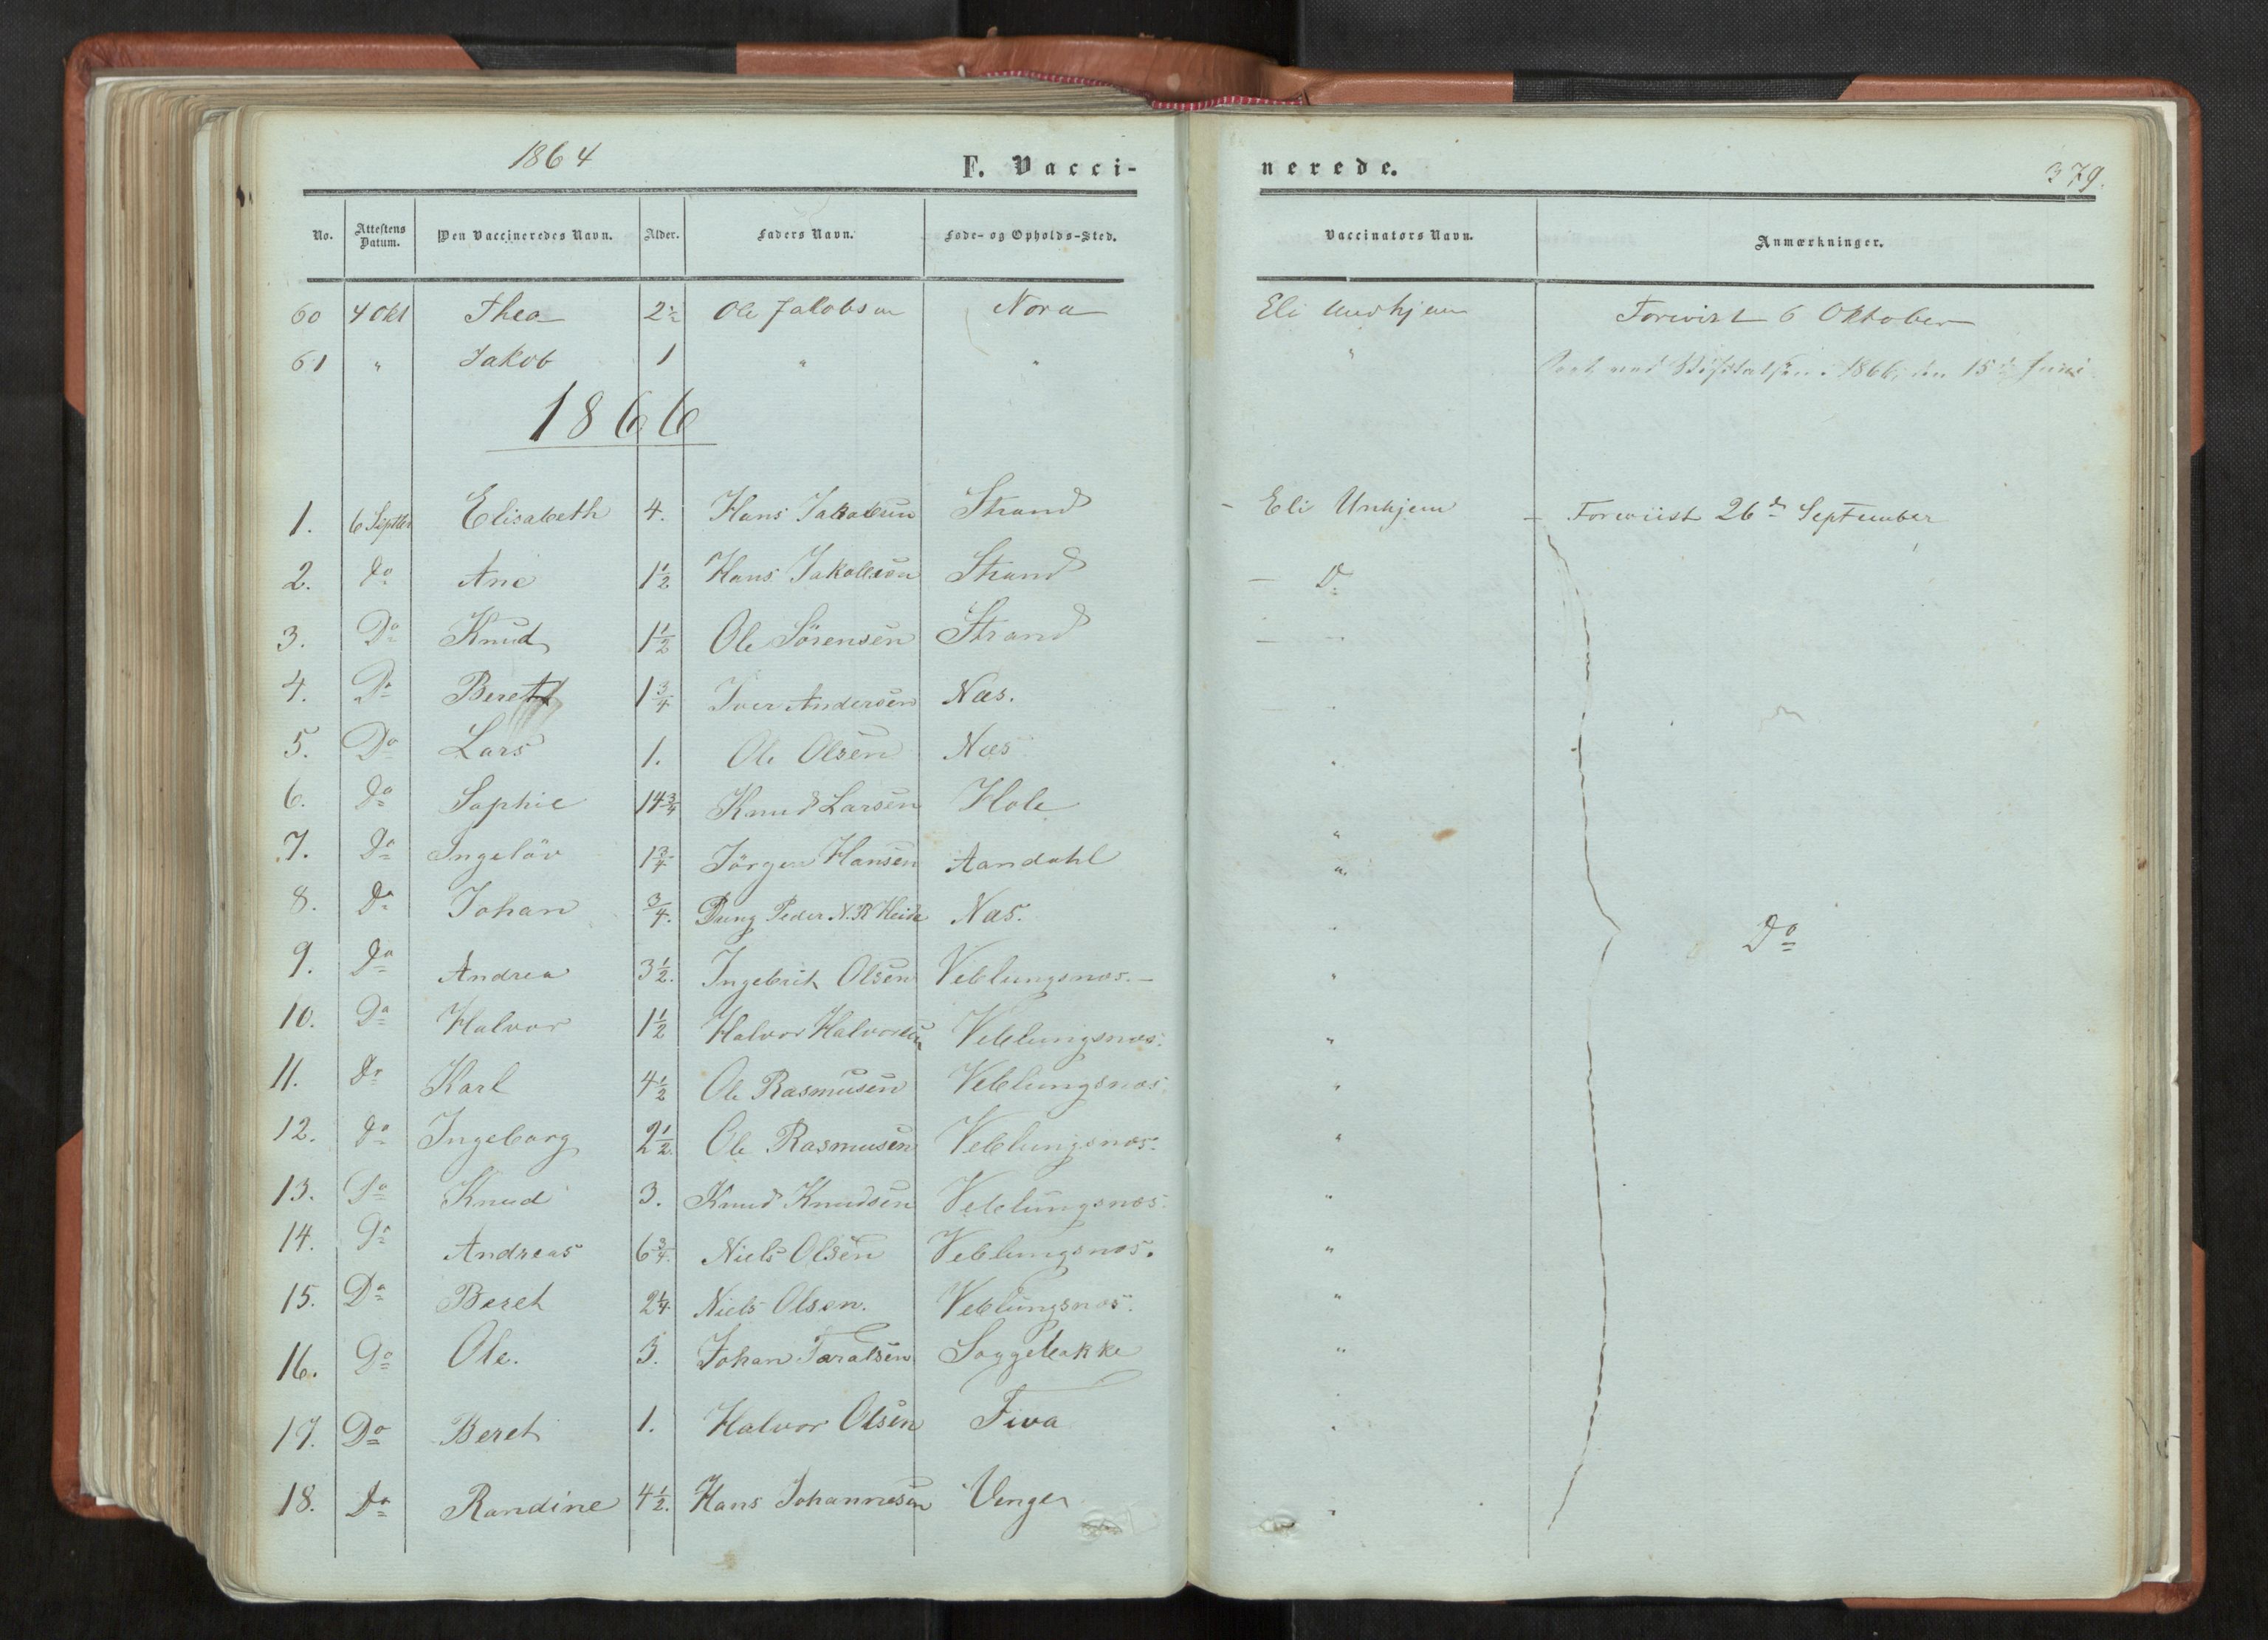 1864
F. Vacci-
nerede.
379.
No. Attestens Datum. Den Vaccineredes Navn. Alder. Faders Navn. Føde- og Opholds-Sted. Vaccinators Navn. Anmærkninger.
60 4 Okt Thea 2½ Ole Jakobsen Nora Eli Unhjem Forevist 6 Oktober
61 " Jakob 1 " " " 1866, den 15de Juni
1866
1. 6 Septbr Elisabeth 4. Hans Jakobsen Strand – Eli Unhjem – Foreviist 26de September
2. do Ane 1½ Hans Jakobsen Strand – Do
3. Do Knud 1½ Ole Sörensen Strand –
4. Do Beret 1¾ Iver Andersen Næs.
5. Do Lars 1. Ole Olsen Næs
6. do Sophie 14¾ Knud Larsen Hole "
7. Do Ingeløv 1¾ Jörgen Hansen Aandahl "
8. Do Johan ¾. Peder N. R Heide Næs. Do
9. Do Andrea 3½. Ingebrit Olsen Veblungsnæs.– "
10. Do Halvor 1½ Halvor Halvorsen Veblungsnæs. "
11. Do Karl 4½ Ole Rasmusen Veblungsnæs "
12. do Ingeborg 2½. Ole Rasmusen Veblungsnæs. "
13. Do Knud 3. Knud Knudsen Veblungsnæs. "
14. Do Andreas 6¾. Niels Olsen Veblungsnæs. "
15. Do Beret 2¼. Niels Olsen. Veblungsnæs. "
16. Do Ole. 3. Johan Taralsen Soggebakke "
17. Do Beret 1. Halvor Olsen Fiva "
18. Do Randine 4½. Hans Johannesen Venger "